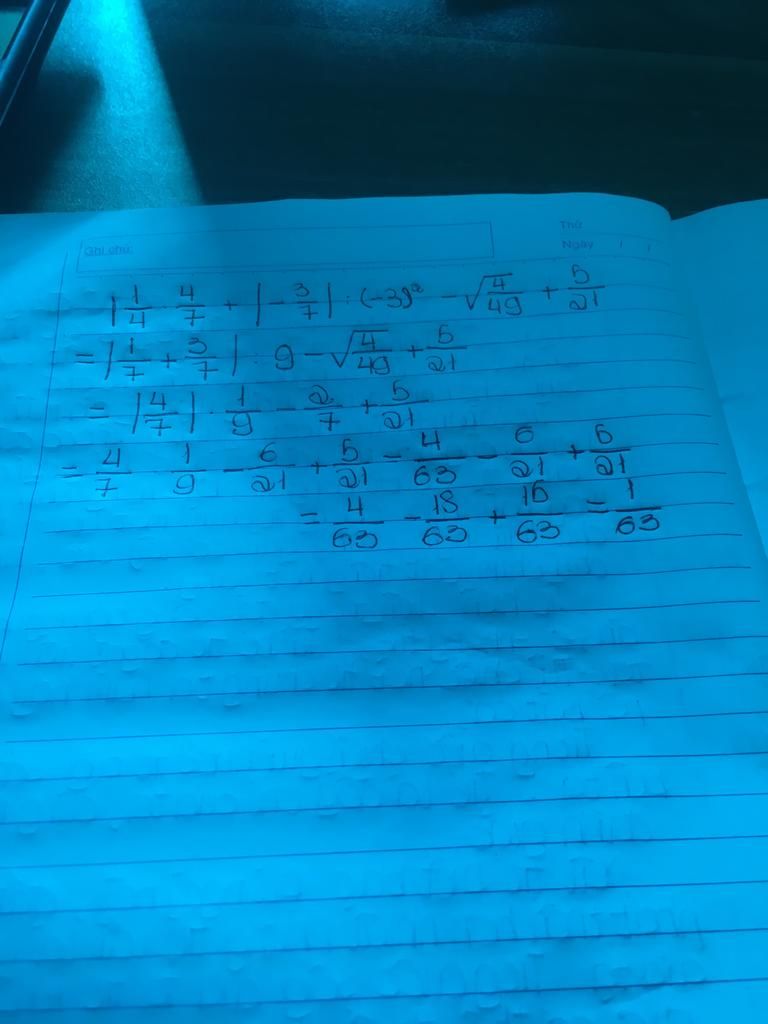 Thứ
Ghi chú:
Ngày / /
|1/4 · 4/7 + |-3/7| : (-3)² - √4/49 + 5/21
= |1/7 + 3/7| : 9 - √4/49 + 5/21
= |4/7| · 1/9 - 2/7 + 5/21
= 4/7 · 1/9 - 6/21 + 5/21 = 4/63 - 6/21 + 5/21
= 4/63 - 18/63 + 15/63 = 1/63